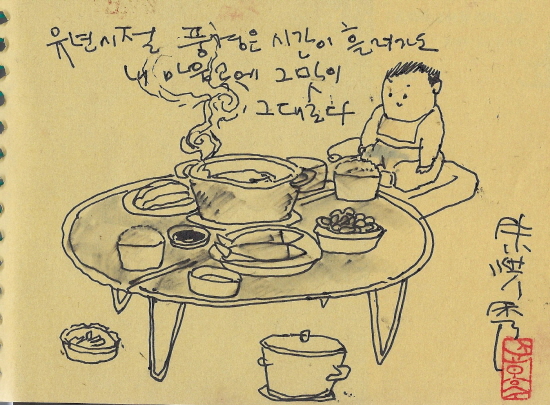 유년시절 풍경은 시간이 흘러가도
내 마음속에 그 맛이
그대로다